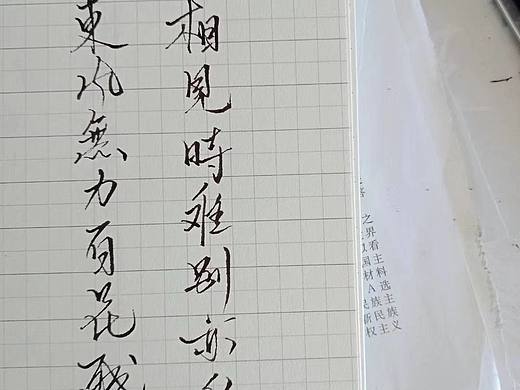 相見時难别亦
東风無力百花残
之
界
看
国主
材料
A 选
民族主
新民族
权主义